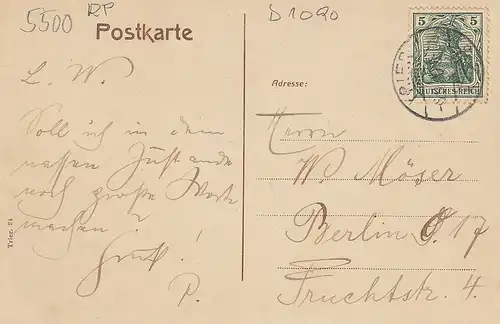 5500 RP
D 1090
Postkarte
5 5
DEUTSCHES REICH
TRIER
L. W.
Soll ich in dem
nassen Zustande
noch große Worte
machen?
Gruß!
P.
Trier. 24
Adresse:
Herrn
W. Möser
Berlin O. 17
Fruchtstr. 4.